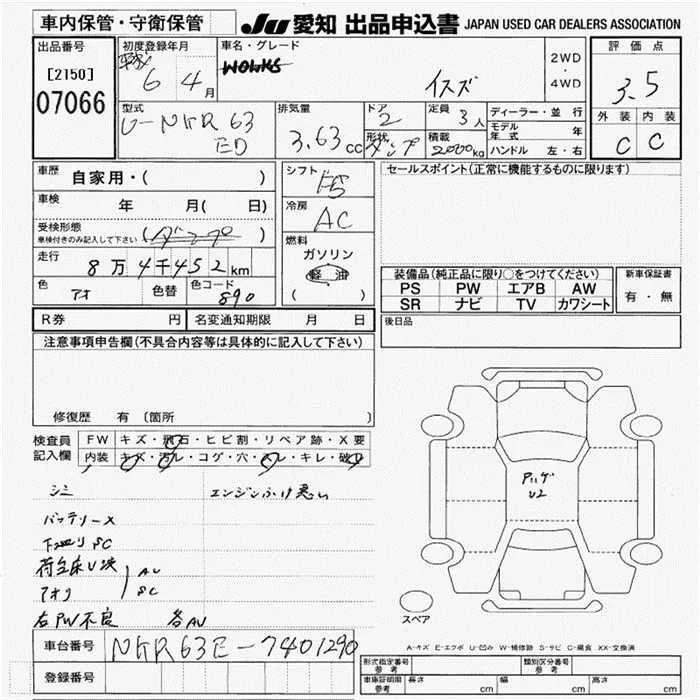 車内保管・守衛保管
JU 愛知 出品申込書 JAPAN USED CAR DEALERS ASSOCIATION
出品番号
[2150]
07066
初度登録年月
平成
6 4月
車名・グレード
イスズ
2WD
・
4WD
評価点
3.5
外装 内装
C C
型式
U-NKR63
ED
排気量
3.63cc
ドア
2
定員
3人
形状
ダンプ
積載
2000kg
ディーラー・並行
モデル年式 年
ハンドル 左・右
車歴
自家用・( )
車検
年 月( 日)
受検形態
車検付きのみ記入して下さい
(ダンプ)
走行
8万4千452km
色
アオ
色替
色コード
890
シフト
F5
冷房
AC
燃料
ガソリン
軽油
( )
セールスポイント(正常に機能するものに限ります)
装備品(純正品に限り○をつけてください)
PS PW エアB AW
SR ナビ TV カワシート
新車保証書
有・無
R券 円
名変通知期限 月 日
後日品
注意事項申告欄(不具合内容等は具体的に記入して下さい)
修復歴 有 〔箇所
検査員
記入欄
FW キズ・飛石・ヒビ割・リペア跡・X要
内装 キズ・汚レ・コゲ・穴・スレ・キレ・破レ
シミ
エンジンふけ悪い
バッテリーX
下廻りSC
荷台床U決
アオリ
AU
SC
右PW不良 各AU
U2
スペア
A-キズ E-エクボ U-凹み W-補修跡 S-サビ C-腐食 XX-交換済
車台番号
NKR63E-7401290
登録番号
形式指定番号
参考
類別区分番号
参考
車庫証明用
参考
長さ cm
幅 cm
高さ cm